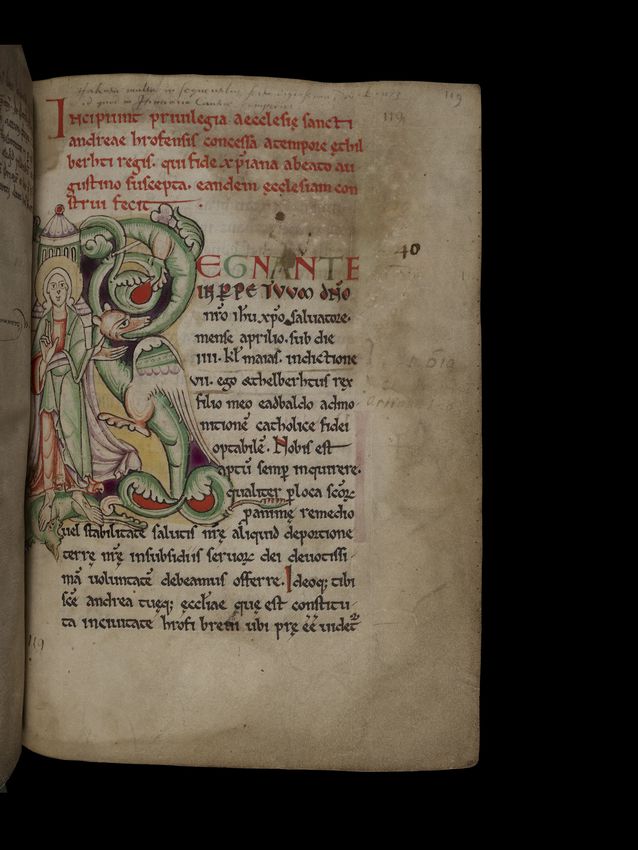 119
119
Incipiunt priuilegia aecclesię sancti
andreae hrofensis concessa a tempore ęthil
berhti regis. qui fide xp̄iana a beato au
gustino suscepta. eandem ęcclesiam con
strui fecit
40
REGNANTE
IN PERPETUUM dn̄o
nr̄o ih̄u xp̄o saluatore.
mense aprilio. sub die
iiii. kl̄ maias. indictione
vii. ego æthelberhtus rex
filio meo eadbaldo admo
nitionē catholice fidei
optabilē. Nobis est
aptū semp̱ inquirere.
qualiter p̱ loca scōꝝ
pan̄imę remedio
uel stabilitate salutis nr̄ę aliquid de portione
terrę nr̄ę in subsidiis seruoꝝ dei deuotissi
mā uoluntatē debeamus offerre. Ideoq; tibi
scē andrea tuęq; ęccl̄iae quę est constitu
ta in ciuitate hrofi breui ubi pręēē uidet᷑
119